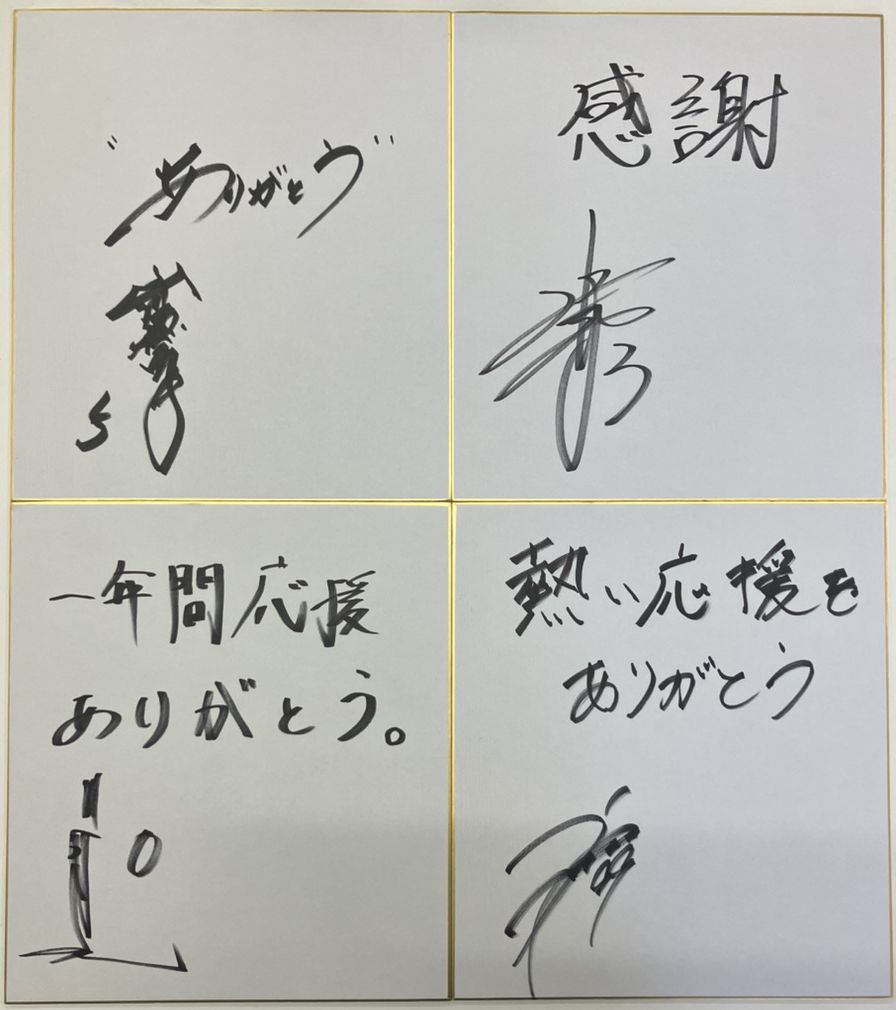 "ありがとう"
5
感謝
3
一年間応援
ありがとう。
0
熱い応援を
ありがとう